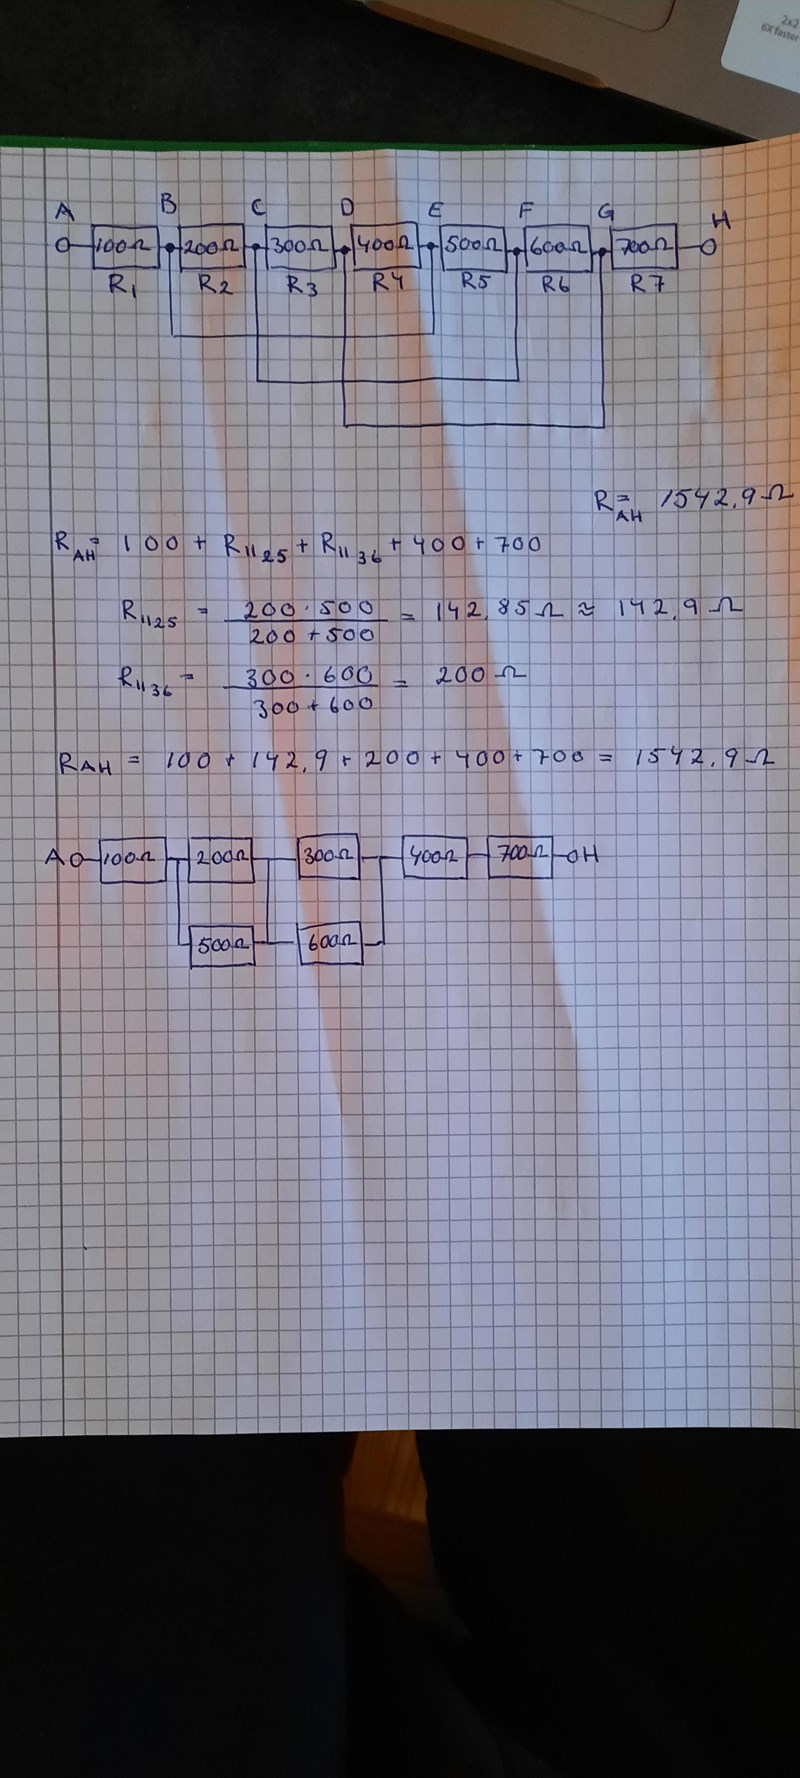 2x2
6X faster
A B C D E F G H
100Ω 200Ω 300Ω 400Ω 500Ω 600Ω 700Ω
R1 R2 R3 R4 R5 R6 R7
R_AH = 1542,9Ω
R_AH = 100 + R_||25 + R_||36 + 400 + 700
R_||25 = (200 · 500)/(200 + 500) = 142,85Ω ≈ 142,9Ω
R_||36 = (300 · 600)/(300 + 600) = 200Ω
RAH = 100 + 142,9 + 200 + 400 + 700 = 1542,9Ω
A 100Ω 200Ω 300Ω 400Ω 700Ω H
500Ω 600Ω